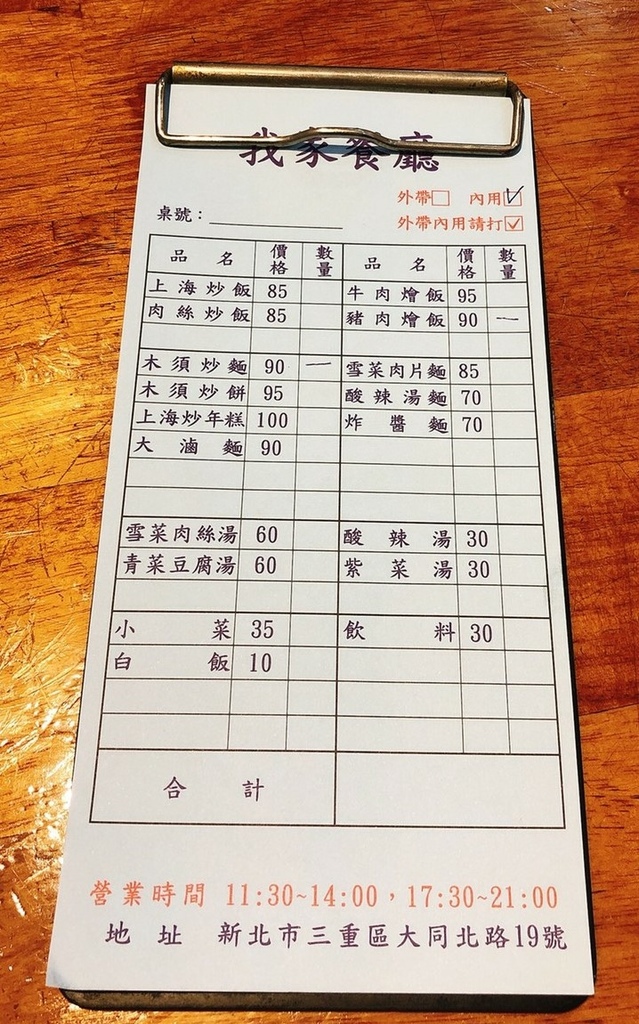 我家餐廳
外帶□ 內用☑
桌號：
外帶內用請打☑
品名 價格 數量 品名 價格 數量
上海炒飯 85 牛肉燴飯 95
肉絲炒飯 85 豬肉燴飯 90 一
木須炒麵 90 一 雪菜肉片麵 85
木須炒餅 95 酸辣湯麵 70
上海炒年糕 100 炸醬麵 70
大滷麵 90
雪菜肉絲湯 60 酸辣湯 30
青菜豆腐湯 60 紫菜湯 30
小菜 35 飲料 30
白飯 10
合計
營業時間 11:30~14:00，17:30~21:00
地址 新北市三重區大同北路19號